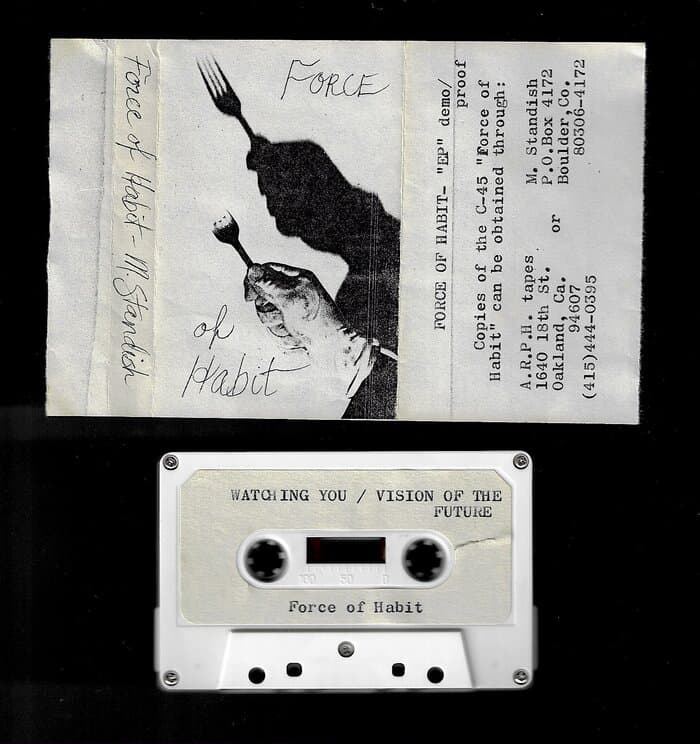 Force of Habit - M. Standish
FORCE
of
Habit
FORCE OF HABIT- "EP" demo/
proof
Copies of the C-45 "Force of
Habit" can be obtained through:
A.R.P.H. tapes
1640 18th St.
Oakland, Ca.
94607
(415)444-0395
or
M. Standish
P.O.Box 4172
Boulder,Co.
80306-4172
WATCHING YOU / VISION OF THE
FUTURE
100 50 0
Force of Habit